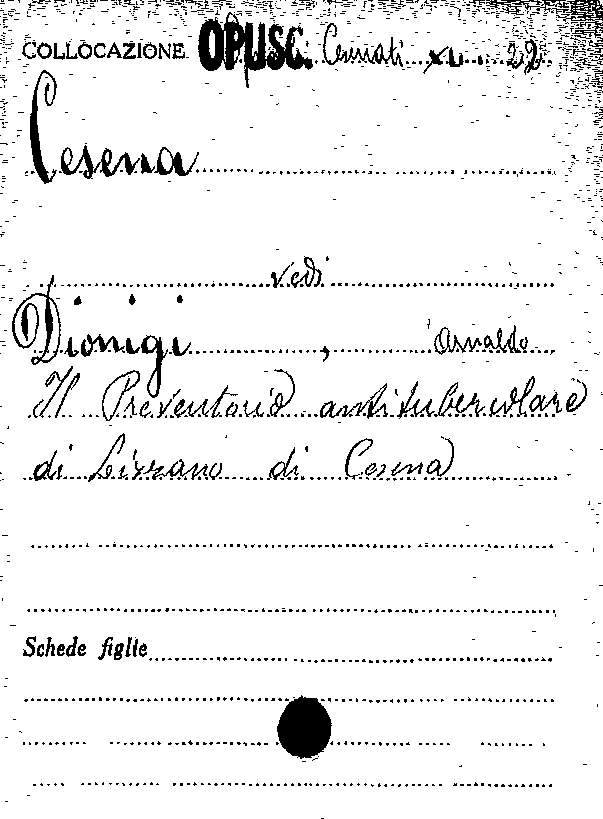 COLLOCAZIONE OPUSC. XL. 22
Cesena
vedi
Dionigi, Arnaldo
Il Preventorio antitubercolare
di Lizzano di Cesena
Schede figlie